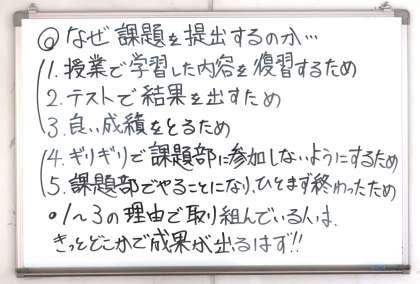 ◎なぜ課題を提出するのか…
1.授業で学習した内容を復習するため
2.テストで結果を出すため
3.良い成績をとるため
4.ギリギリで課題部に参加しないようにするため
5.課題部でやることになり、ひとまず終わったため
•1〜3の理由で取り組んでいる人は、
きっとどこかで成果が出るはず!!